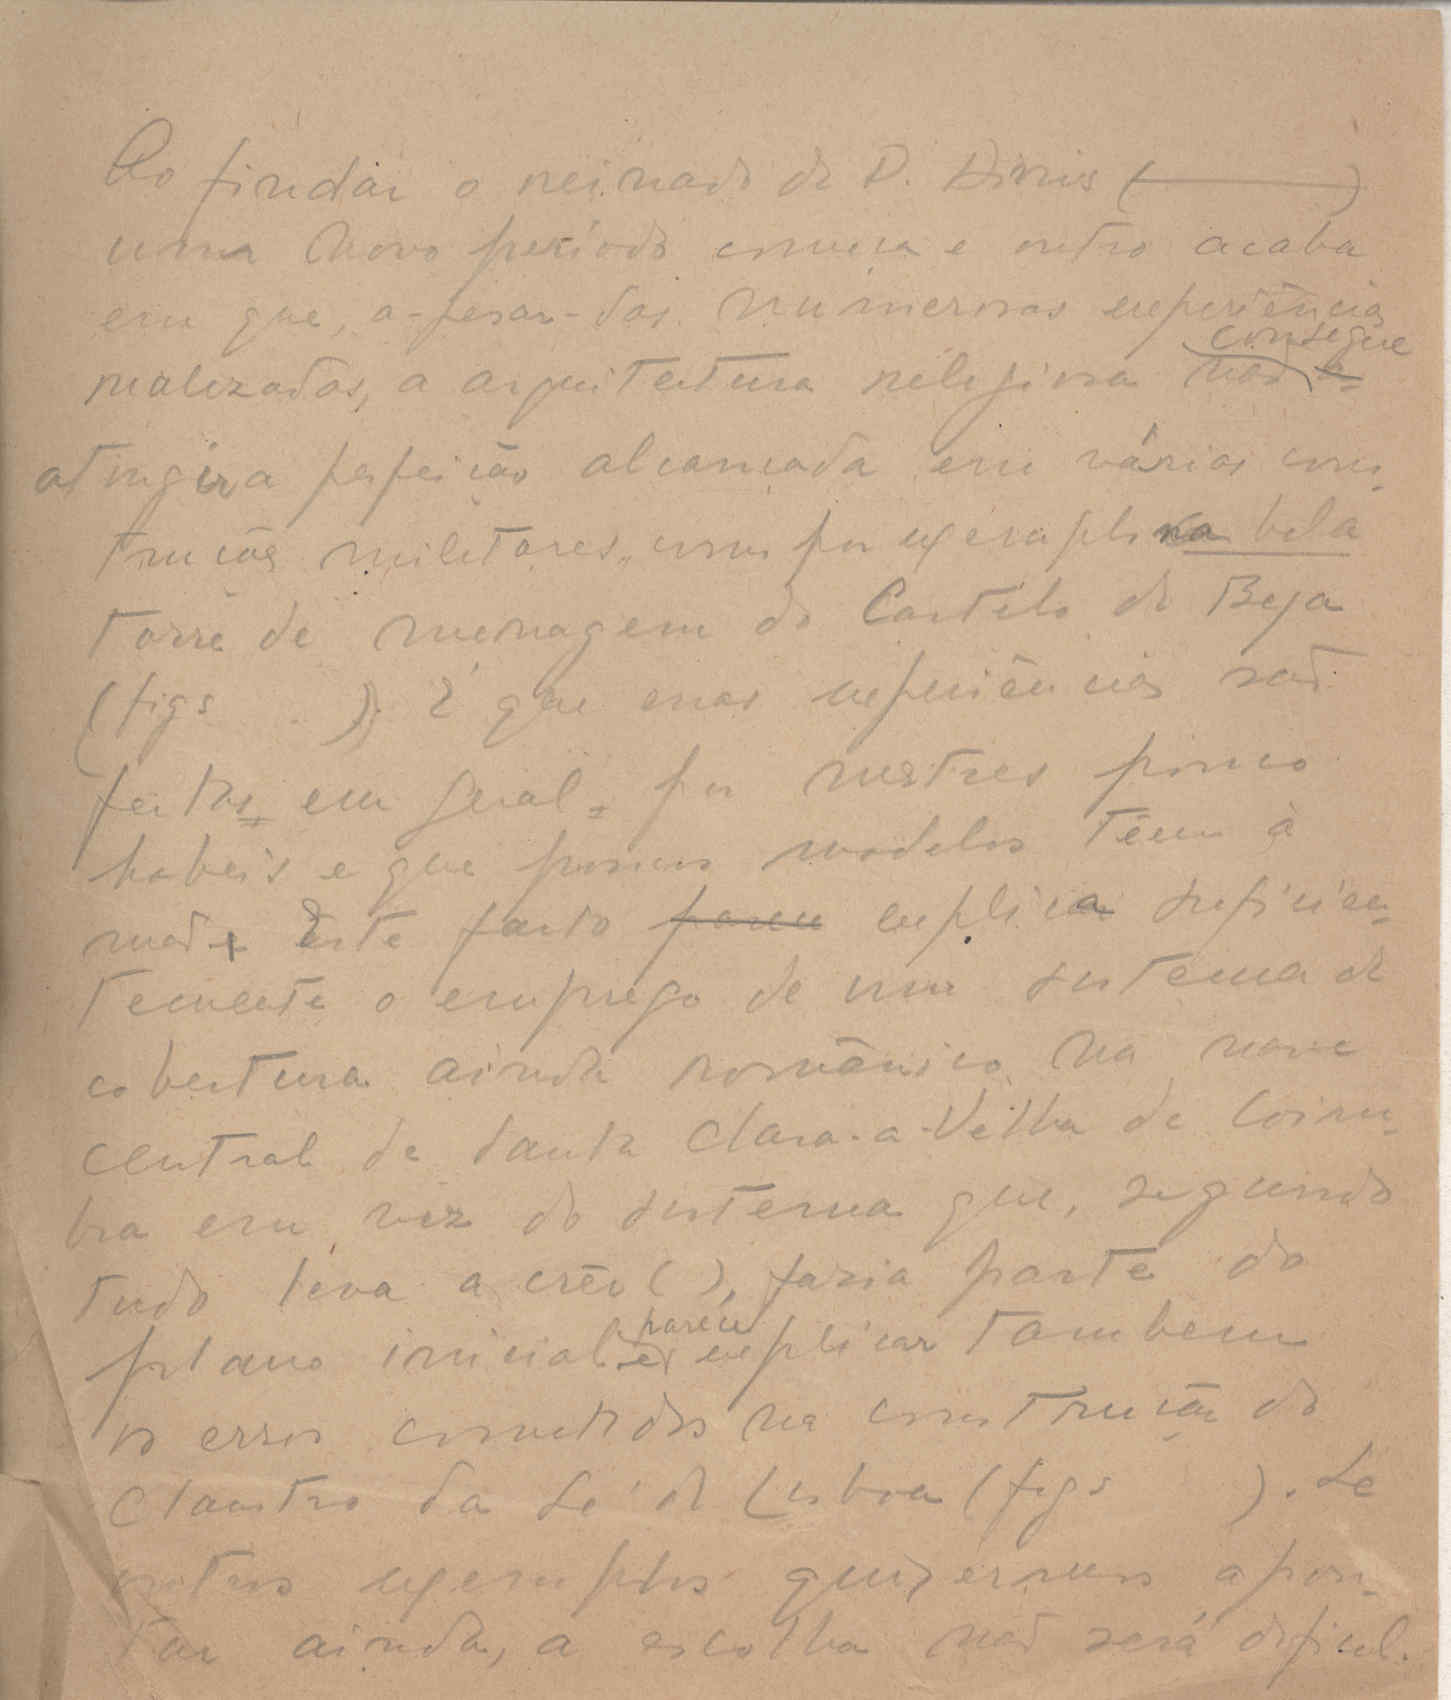 Ao findar o reinado de D. Dinis (———)
uma novo período começa e outro acaba
em que, a-pesar-das numerosas experiências
consegue
realizadas, a arquitetura religiosa não a-
atingir a perfeição alcançada em várias cons-
truções militares, como por exemplo na bela
torre de menagem do Castelo de Beja
(figs . ). É que essas experiências são
feitas, em geral, por mestres pouco
habeis e que poucos modelos têem à
mão. Este facto parece explica suficien-
temente o emprego de um sistema de
cobertura ainda românico na nave
central de Santa Clara-a-Velha de Coim-
bra em vez do sistema que, segundo
tudo leva a crêr ( ), fazia parte do
parece
plano inicial. e explicar tambem
os erros cometidos na construção do
Claustro da Sé de Lisboa (figs ). Se
outros exemplos quizermos apon-
tar ainda, a escolha não será dificil.